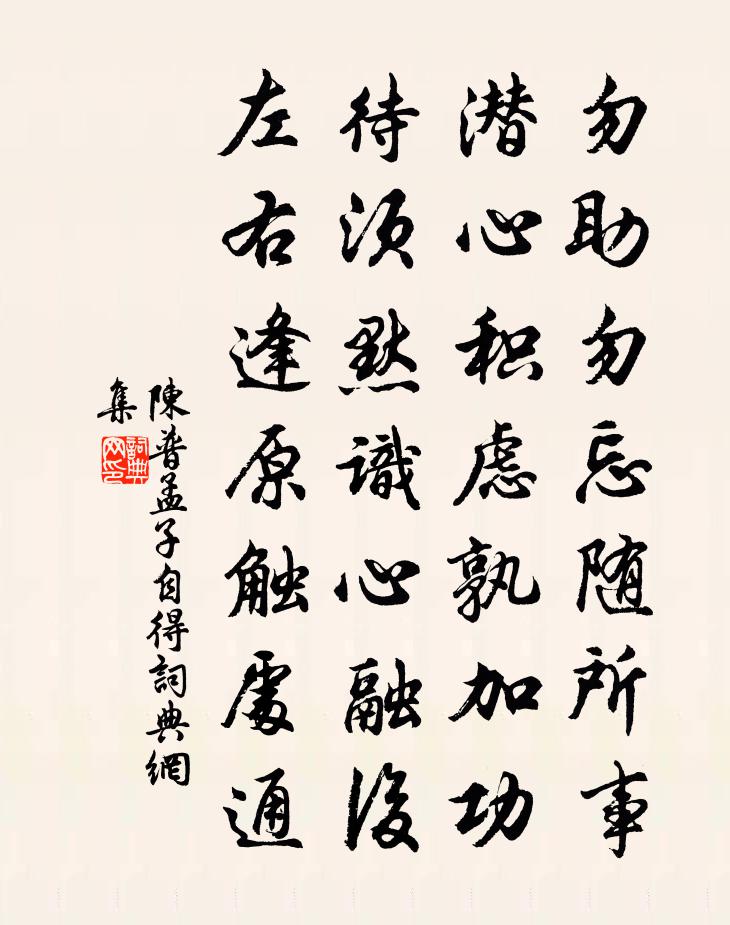 勿助勿忘随所事
潜心积虑孰加功
待须默識心融後
左右逢原触處通
陳普孟子自得詞典網
集
詞典
网印